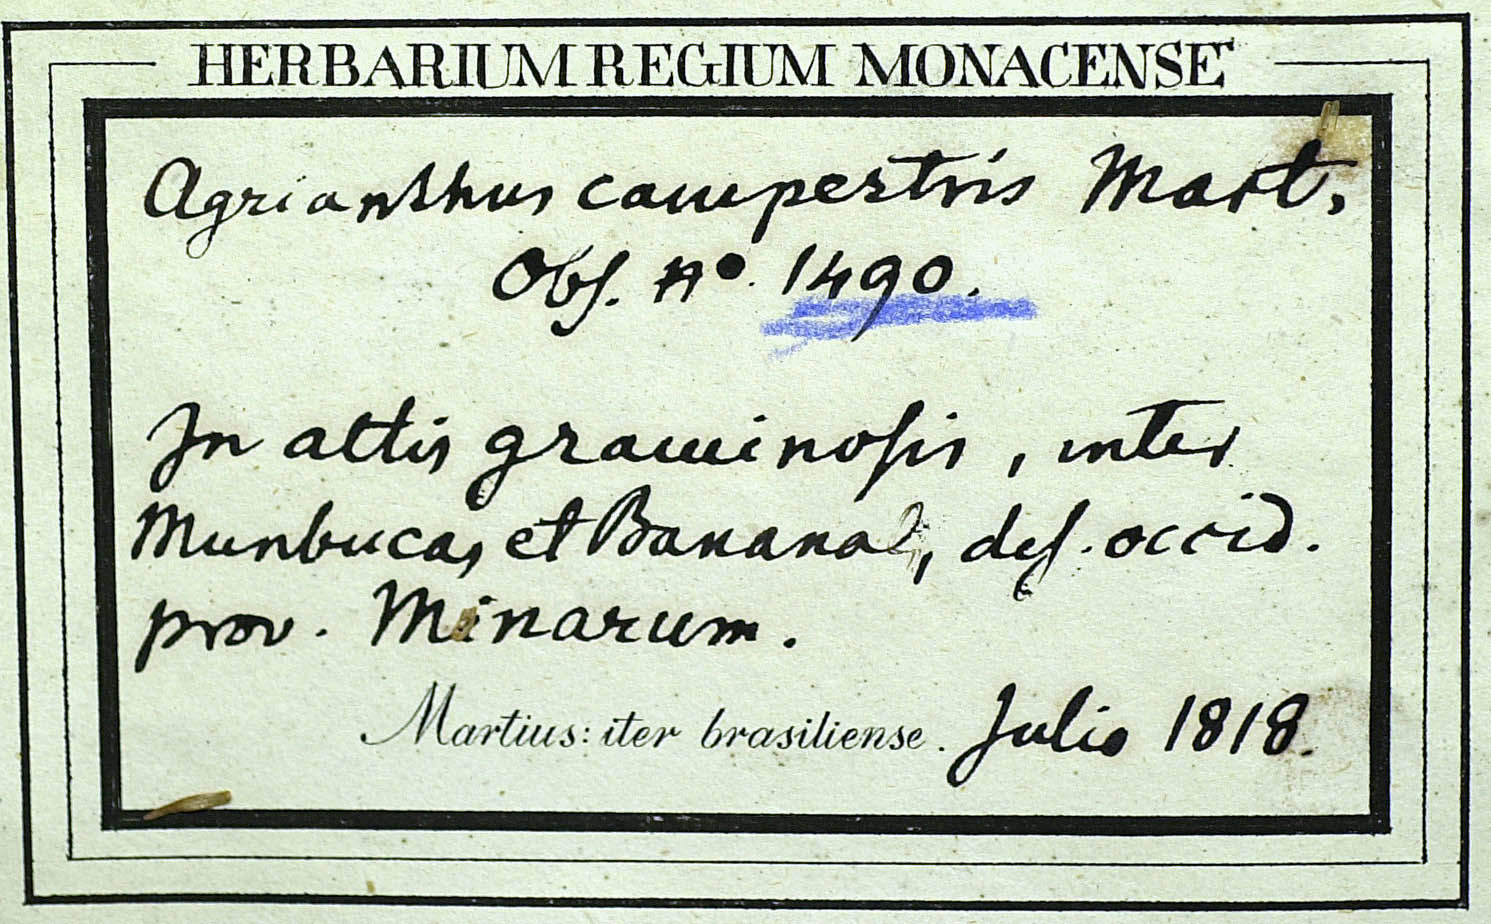 HERBARIUM REGIUM MONACENSE
Agrianthus campestris Mart.
Obs. No. 1490.
In altis graminosis, inter
Munbucas et Bananal, des. occid.
prov. Minarum.
Martius: iter brasiliense. Julio 1818.